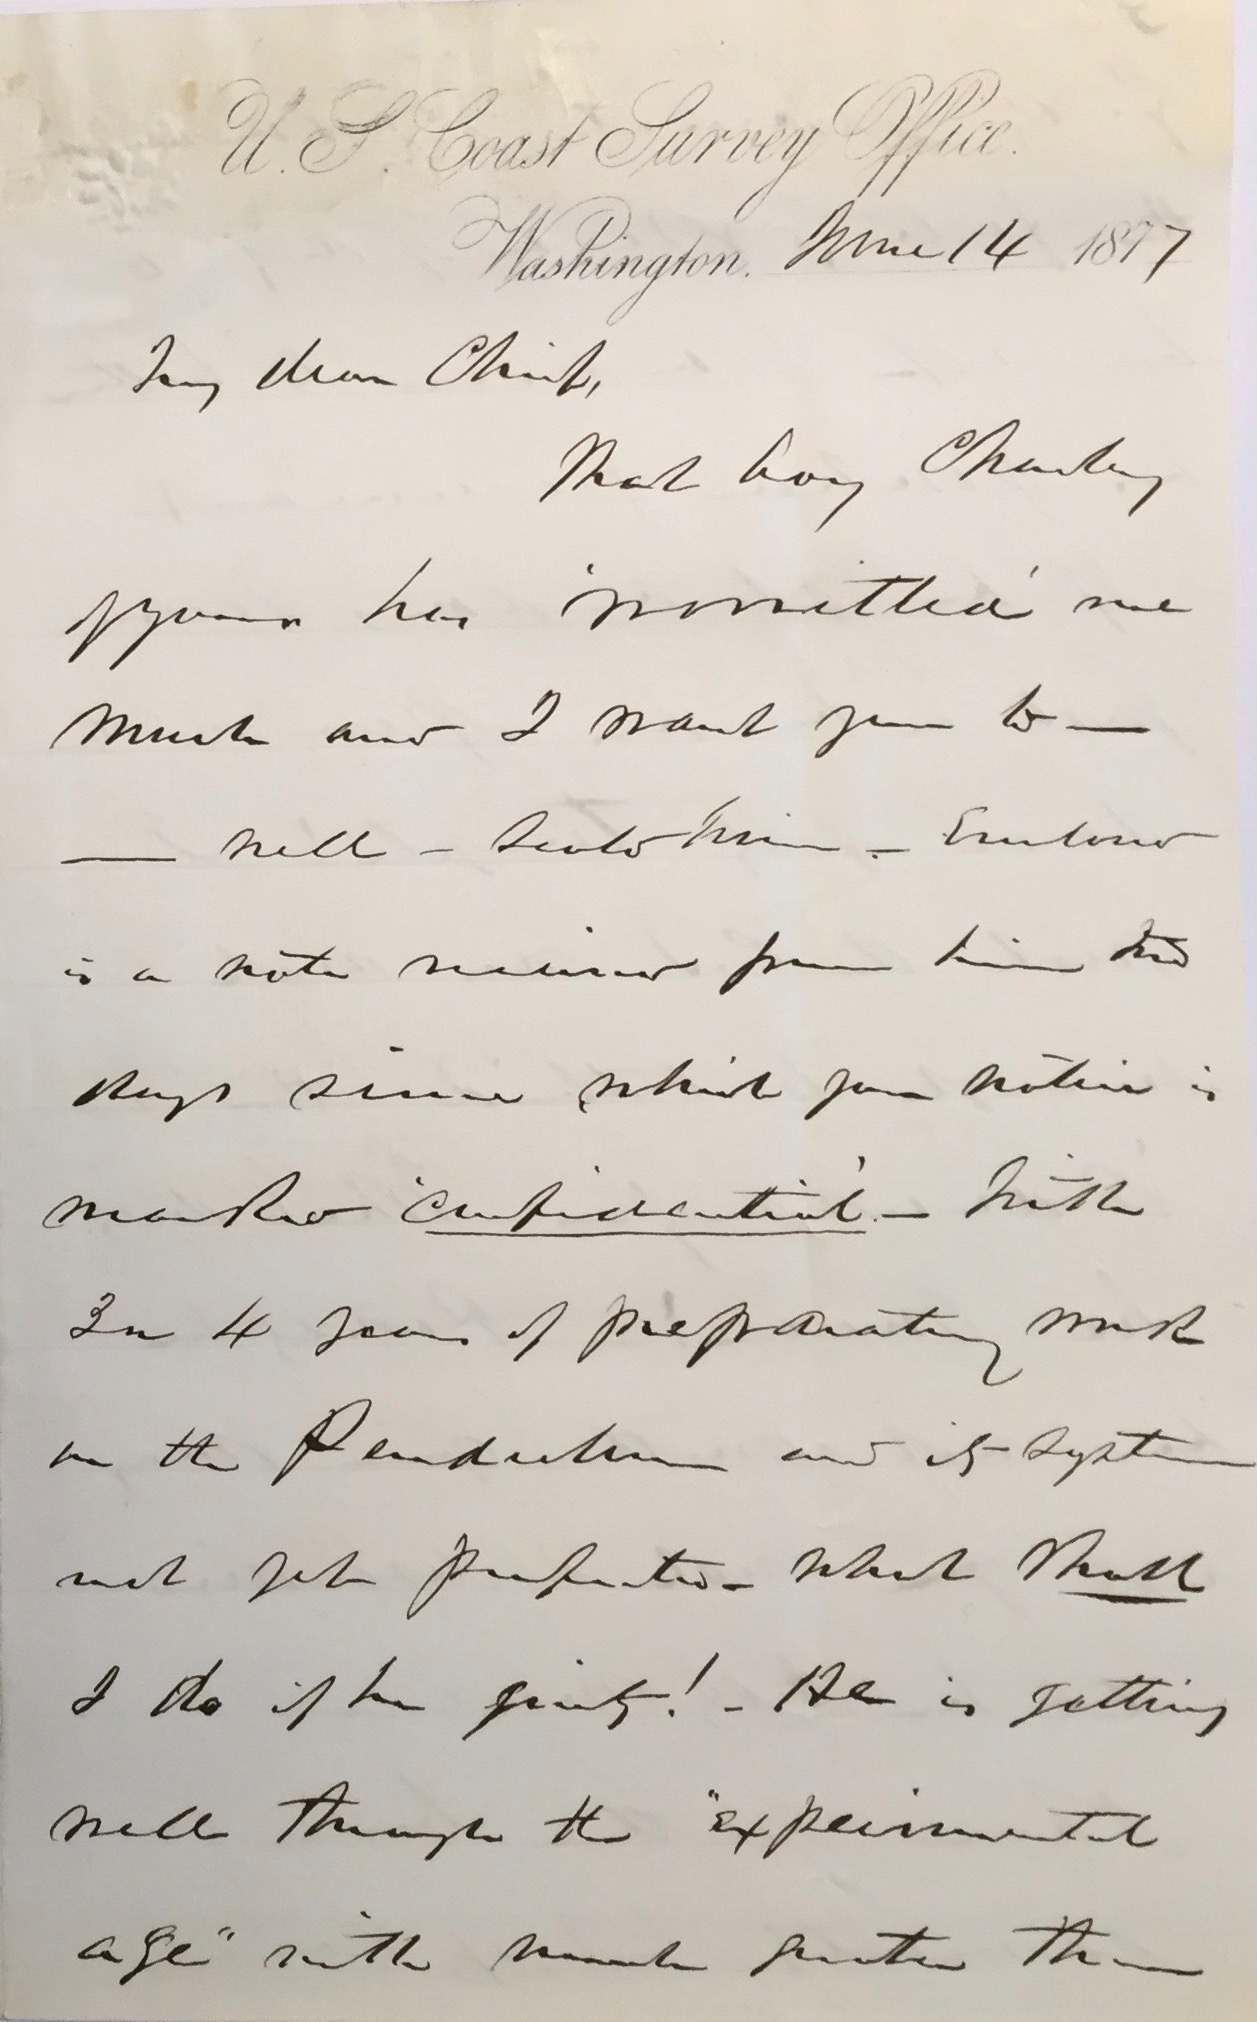 U. S. Coast Survey Office.
Washington. June 14 1877
My dear Chief,
That boy Charley
of yours has 'worritted' me
much and I want you to —
— well — scold him. — Enclosed
is a note received from him two
days since which you notice is
marked 'confidential'. — With
3 or 4 years of preparatory work
on the Pendulum and its system
not yet perfected — what shall
I do if he quits! — He is getting
well through the "experimental
age" with much greater than